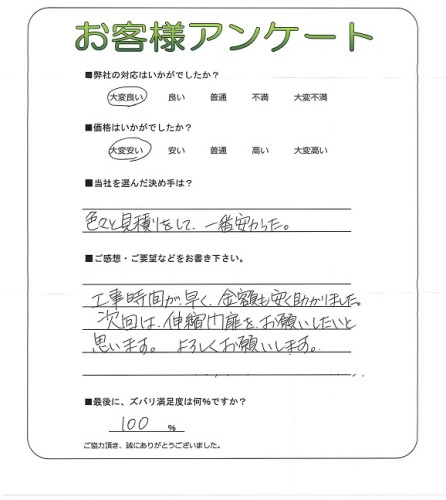 お客様アンケート
■弊社の対応はいかがでしたか?
大変良い 良い 普通 不満 大変不満
■価格はいかがでしたか?
大変安い 安い 普通 高い 大変高い
■当社を選んだ決め手は?
色々と見積りをして、一番安かった。
■ご感想・ご要望などをお書き下さい。
工事時間が早く、金額も安く助かりました。
次回は、伸縮門扉を、お願いしたいと
思います。 よろしくお願いします。
■最後に、ズバリ満足度は何%ですか?
100 %
ご協力頂き、誠にありがとうございました。